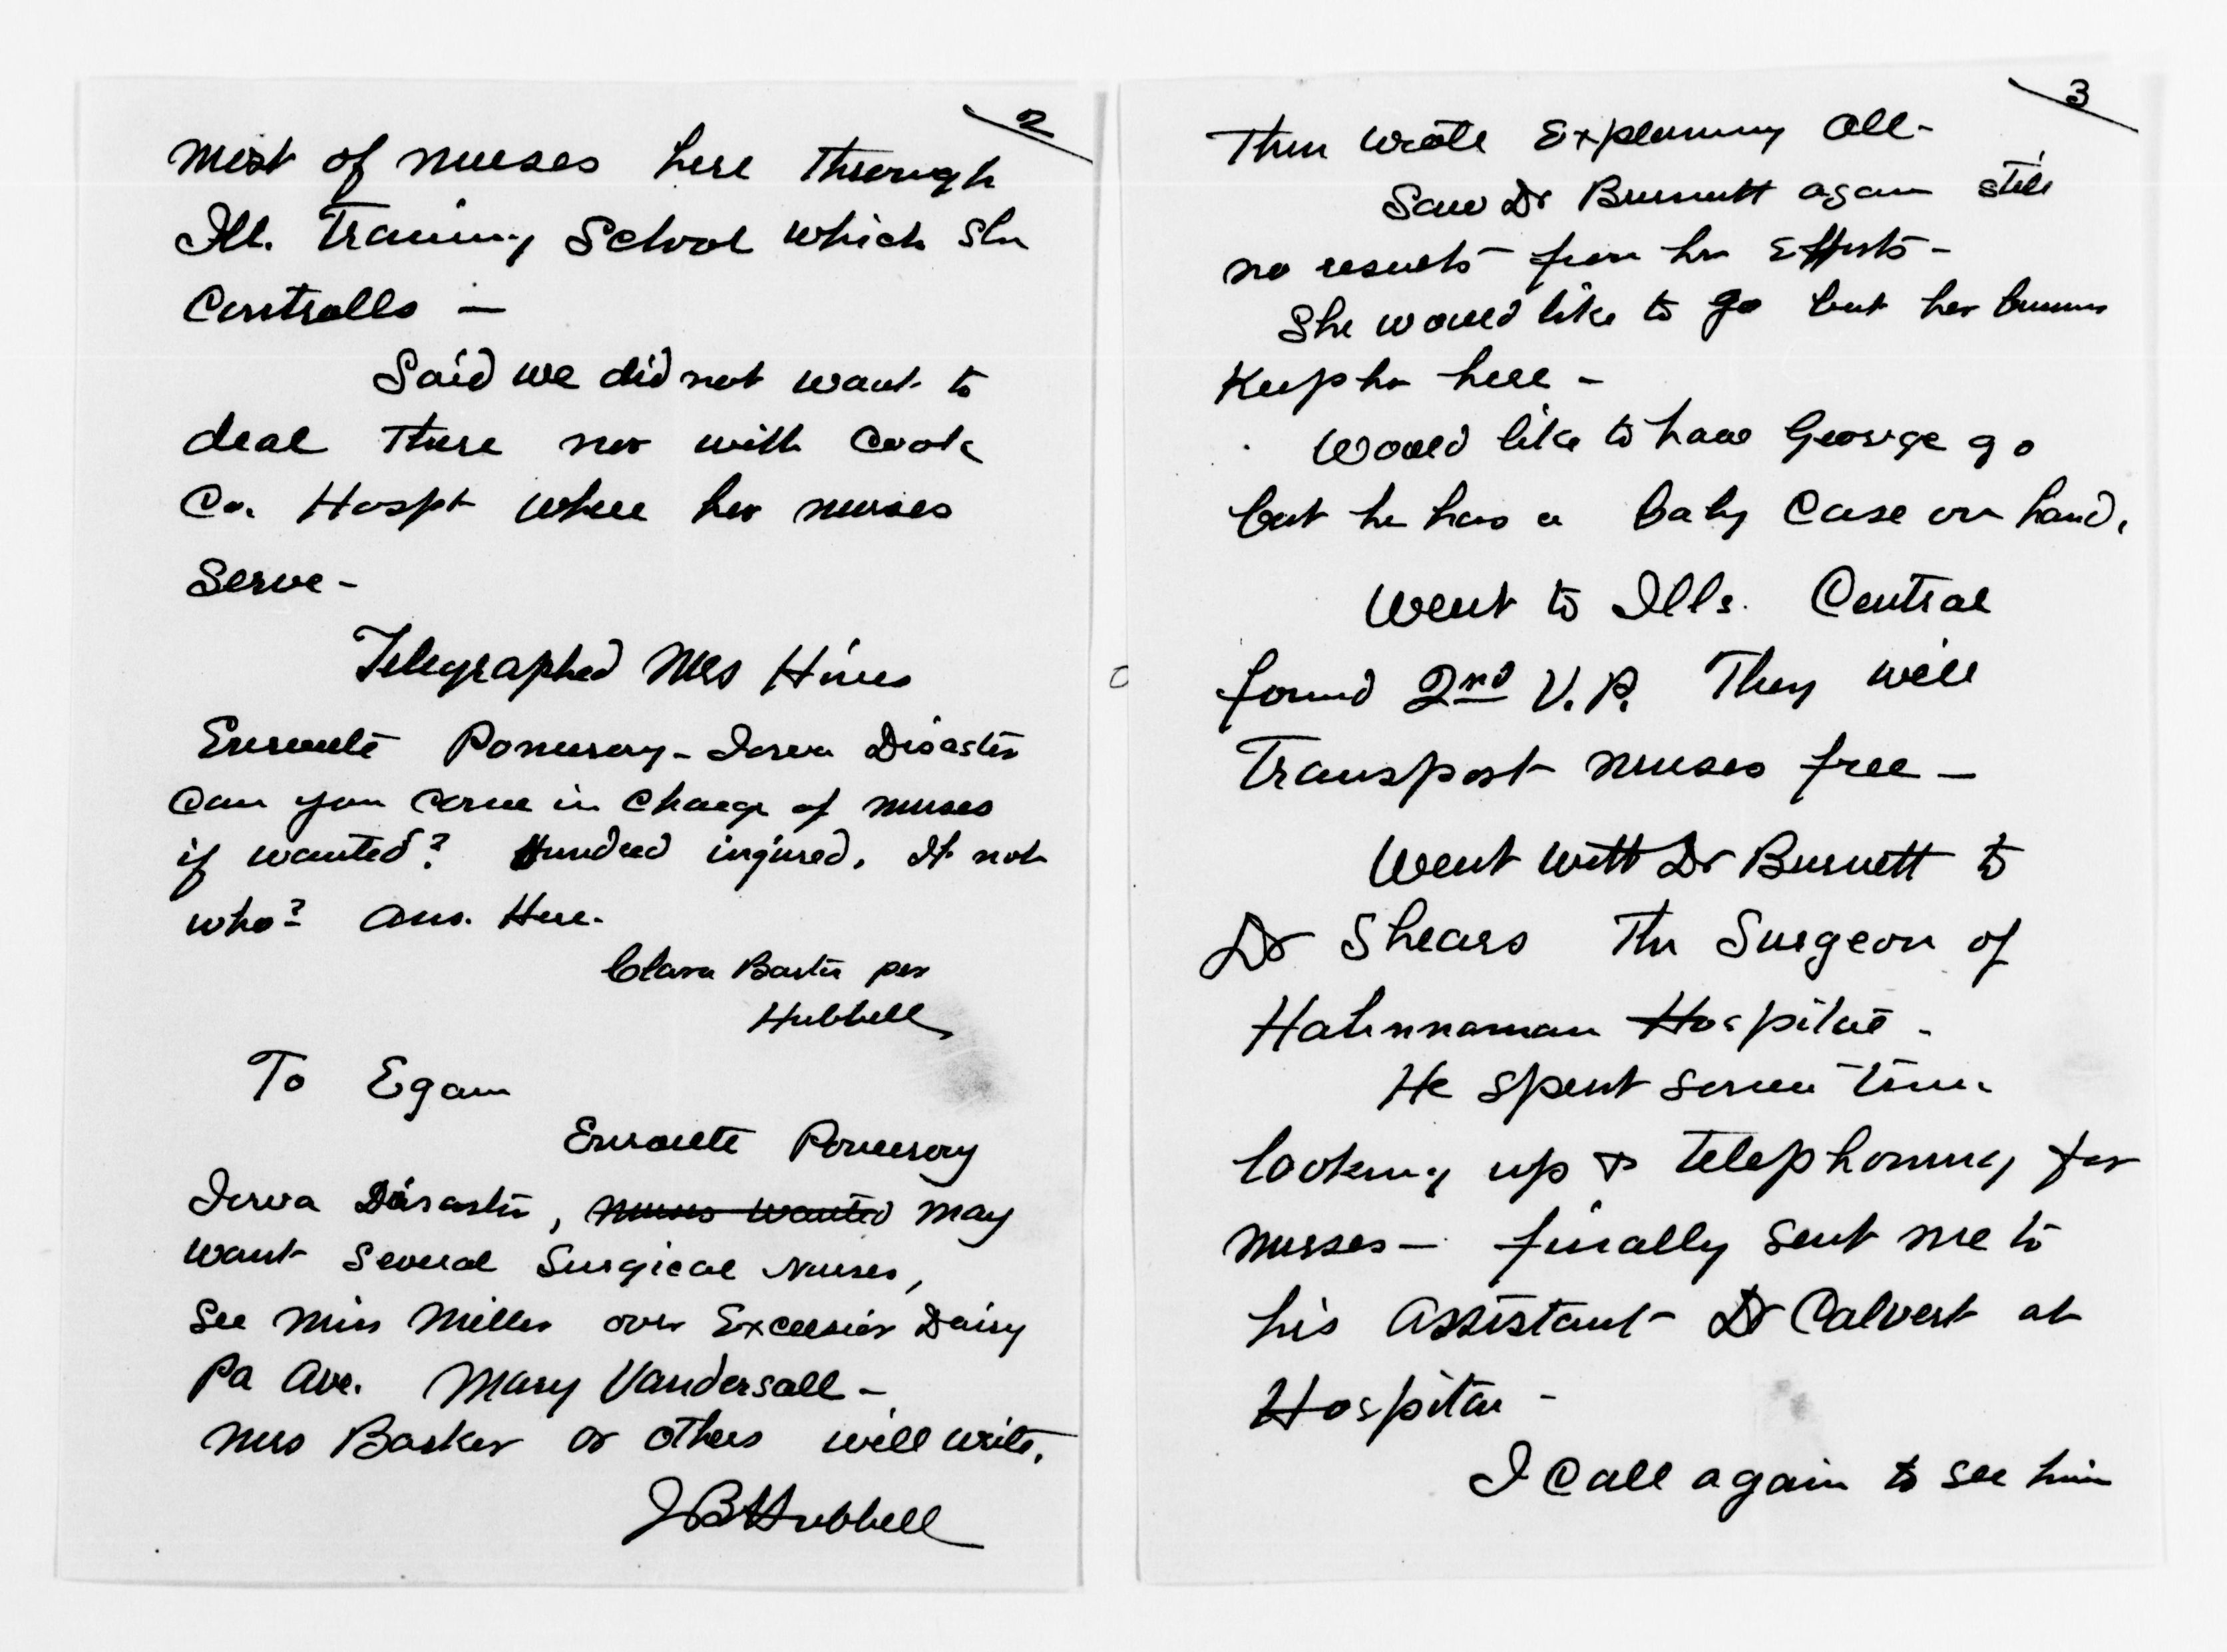 2
most of nurses here through
Ill. Training School which she
Controlls —
Said we did not want to
deal there nor with Cook
Co. Hospt where her nurses
serve -
Telegraphed Mrs Hines
Enroute Pomeroy - Iowa Disaster
Can you come in charge of nurses
if wanted? Hundred injured. If not
who? Ans. Here.
Clara Barton per
Hubbell
To Egan
Enroute Pomeroy
Iowa Disaster, nurses wanted may
want several Surgical Nurses,
See Miss Miller over Excelsior Dairy
Pa Ave. Mary Vandersall -
Mrs Barker or others will write.
JBHubbell
3
Then wrote Explaining all -
Saw Dr Burnett again still
no results from her Efforts -
She would like to go but her
Keeps her here -
Would like to have George go
but he has a baby case on hand.
Went to Ills. Central
found 2nd V.P. They will
Transport nurses free —
Went with Dr Burnett to
Dr Shears The Surgeon of
Hahnnaman Hospital -
He spent some time
looking up & telephoning for
nurses — finally sent me to
his assistant Dr Calvert at
Hospital -
I call again to see him